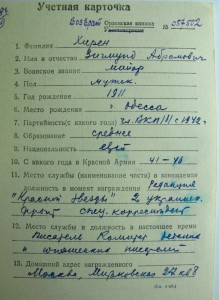 Учетная карточка
Возврат Орденская книжка № 057502
1. Фамилия Хирен
2. Имя и отчество Зигмунд Абрамович
3. Воинское звание майор
4. Пол мужск.
5. Год рождения 1911
6. Место рождения г. Одесса
7. Партийность (с какого года) Чл. ВКП(б) с 1942 г.
8. Образование среднее
9. Национальность еврей
10. С какого года в Красной Армии 41-46
11. Место службы (наименование части) и занимаемая
должность в момент награждения Редакция
"Красной звезды" 2 украинск.
фронт спец. корреспондент
12. Место службы и должность в настоящее время
писатель
и
13. Домашний адрес награжденного
Москва,